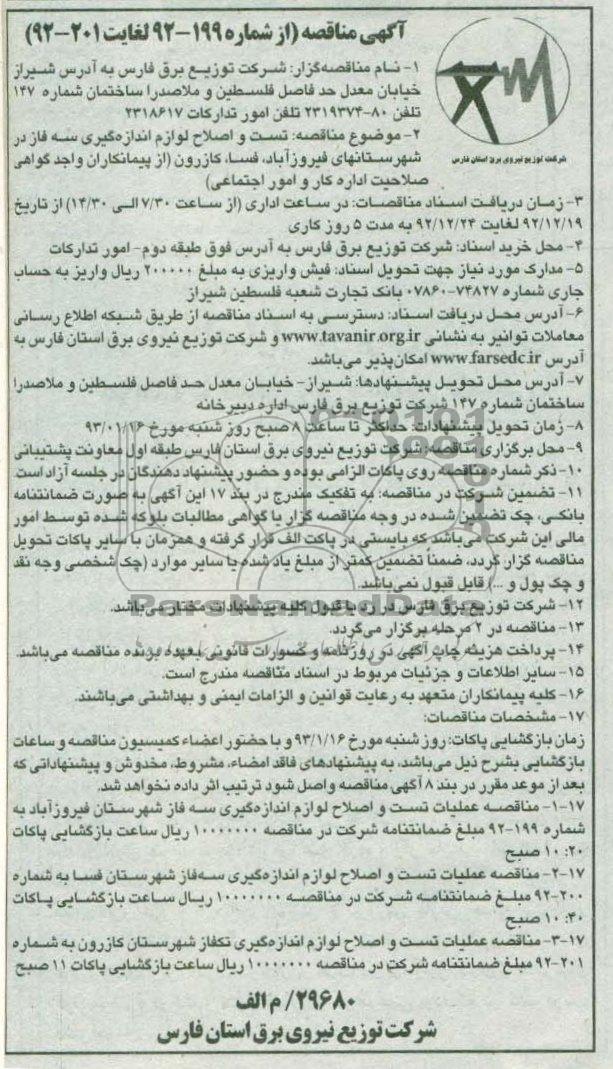 آگهی مناقصه (از شماره ۱۹۹-۹۲ لغایت ۲۰۱-۹۲)
شرکت توزیع نیروی برق استان فارس
۱- نـام مناقصه‌گزار: شـرکت توزیـع برق فارس به آدرس شیراز
خیابان معدل حد فاصل فلسطین و ملاصدرا ساختمان شماره ۱۴۷
تلفن ۸۰-۲۳۱۹۳۷۴ تلفن امور تدارکات ۲۳۱۸۶۱۷
۲- موضوع مناقصه: تست و اصلاح لوازم اندازه‌گیری سه فاز در
شهرستانهای فیروزآباد، فسا، کازرون (از پیمانکاران واجد گواهی
صلاحیت اداره کار و امور اجتماعی)
۳- زمـان دریافـت اسـناد مناقصـات: در ساعت اداری (از ساعت ۷/۳۰ الـی ۱۴/۳۰) از تاریخ
۹۲/۱۲/۱۹ لغایت ۹۲/۱۲/۲۴ به مدت ۵ روز کاری
۴- محل خرید اسناد: شرکت توزیع برق فارس به آدرس فوق طبقه دوم- امور تدارکات
۵- مدارک مورد نیاز جهت تحویل اسناد: فیش واریزی به مبلغ ۲۰۰۰۰۰ ریال واریز به حساب
جاری شماره ۷۴۸۲۷-۰۷۸۶۰ بانک تجارت شعبه فلسطین شیراز
۶- آدرس محـل دریافت اسـناد: دسترسـی به اسـناد مناقصه از طریق شـبکه اطلاع رسـانی
معاملات توانیر به نشانی www.tavanir.org.ir و شرکت توزیع نیروی برق استان فارس به
آدرس www.farsedc.ir امکان‌پذیر می‌باشد.
۷- آدرس محـل تحویـل پیشـنهادها: شـیراز- خیابـان معدل حـد فاصل فلسـطین و ملاصدرا
ساختمان شماره ۱۴۷ شرکت توزیع برق فارس اداره دبیرخانه
۸- زمان تحویل پیشنهادات: حداکثر تا ساعت ۸ صبح روز شنبه مورخ ۹۳/۰۱/۱۶
۹- محل برگزاری مناقصه: شرکت توزیع نیروی برق استان فارس طبقه اول معاونت پشتیبانی
۱۰- ذکر شماره مناقصه روی پاکات الزامی بوده و حضور پیشنهاد دهندگان در جلسه آزاد است.
۱۱- تضمین شـرکت در مناقصه: به تفکیک مندرج در بند ۱۷ این آگهی به صورت ضمانتنامه
بانکـی، چک تضمین شـده در وجه مناقصه گزار یا گواهی مطالبات بلوکه شـده توسط امور
مالی این شرکت می‌باشد که بایستی در پاکت الف قرار گرفته و همزمان با سایر پاکات تحویل
مناقصه گزار گردد، ضمناً تضمین کمتر از مبلغ یاد شده یا سایر موارد (چک شخصی وجه نقد
و چک پول و ...) قابل قبول نمی‌باشد.
۱۲- شرکت توزیع برق فارس در رد یا قبول کلیه پیشنهادات مختار می‌باشد.
۱۳- مناقصه در ۲ مرحله برگزار می‌گردد.
۱۴- پرداخت هزینه چاپ آگهی در روزنامه و کسورات قانونی بعهده برنده مناقصه می‌باشد.
۱۵- سایر اطلاعات و جزئیات مربوط در اسناد مناقصه مندرج است.
۱۶- کلیه پیمانکاران متعهد به رعایت قوانین و الزامات ایمنی و بهداشتی می‌باشند.
۱۷- مشخصات مناقصات:
زمان بازگشایی پاکات: روز شنبه مورخ ۹۳/۱/۱۶ و با حضور اعضاء کمیسیون مناقصه و ساعات
بازگشایی بشرح ذیل می‌باشد، به پیشنهادهای فاقد امضاء، مشروط، مخدوش و پیشنهاداتی که
بعد از موعد مقرر در بند ۸ آگهی مناقصه واصل شود ترتیب اثر داده نخواهد شد.
۱۷-۱- مناقصـه عملیات تسـت و اصلاح لوازم اندازه‌گیری سـه فاز شهرستان فیروزآباد به
شماره ۱۹۹-۹۲ مبلغ ضمانتنامه شرکت در مناقصه ۱۰۰۰۰۰۰۰ ریال ساعت بازگشایی پاکات
۱۰:۲۰ صبح
۱۷-۲- مناقصه عملیات تست و اصلاح لوازم اندازه‌گیری سه‌فاز شهرستان فسا به شماره
۲۰۰-۹۲ مبلـغ ضمانتنامـه شـرکت در مناقصـه ۱۰۰۰۰۰۰۰ ریـال ساعت بازگشایی پاکات
۱۰:۴۰ صبح
۱۷-۳- مناقصه عملیات تست و اصلاح لوازم اندازه‌گیری تکفاز شهرستان کازرون به شماره
۲۰۱-۹۲ مبلغ ضمانتنامه شرکت در مناقصه ۱۰۰۰۰۰۰۰ ریال ساعت بازگشایی پاکات ۱۱ صبح
۲۹۶۸۰/ م الف
شرکت توزیع نیروی برق استان فارس
ParsNamadData